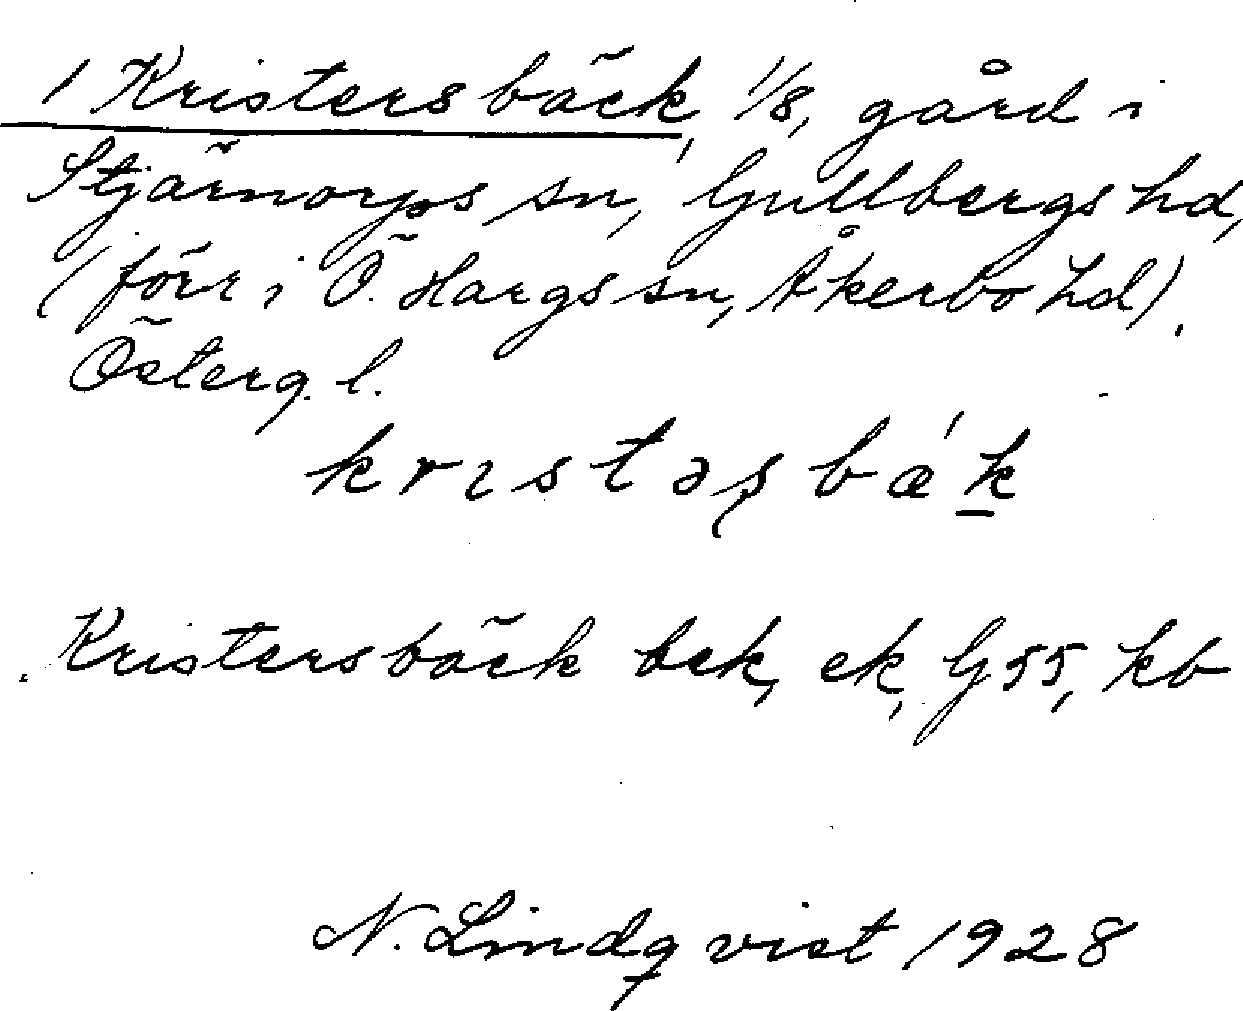 1 Kristersbäck, 1/8, gård i
Stjärnorps sn, Gullbergs hd,
(förr i Ö. Hargs sn, Åkerbo hd).
Österg. l.
krıstəʂbǽk
Kristersbäck bek, ek, G55, kb
N. Lindqvist 1928